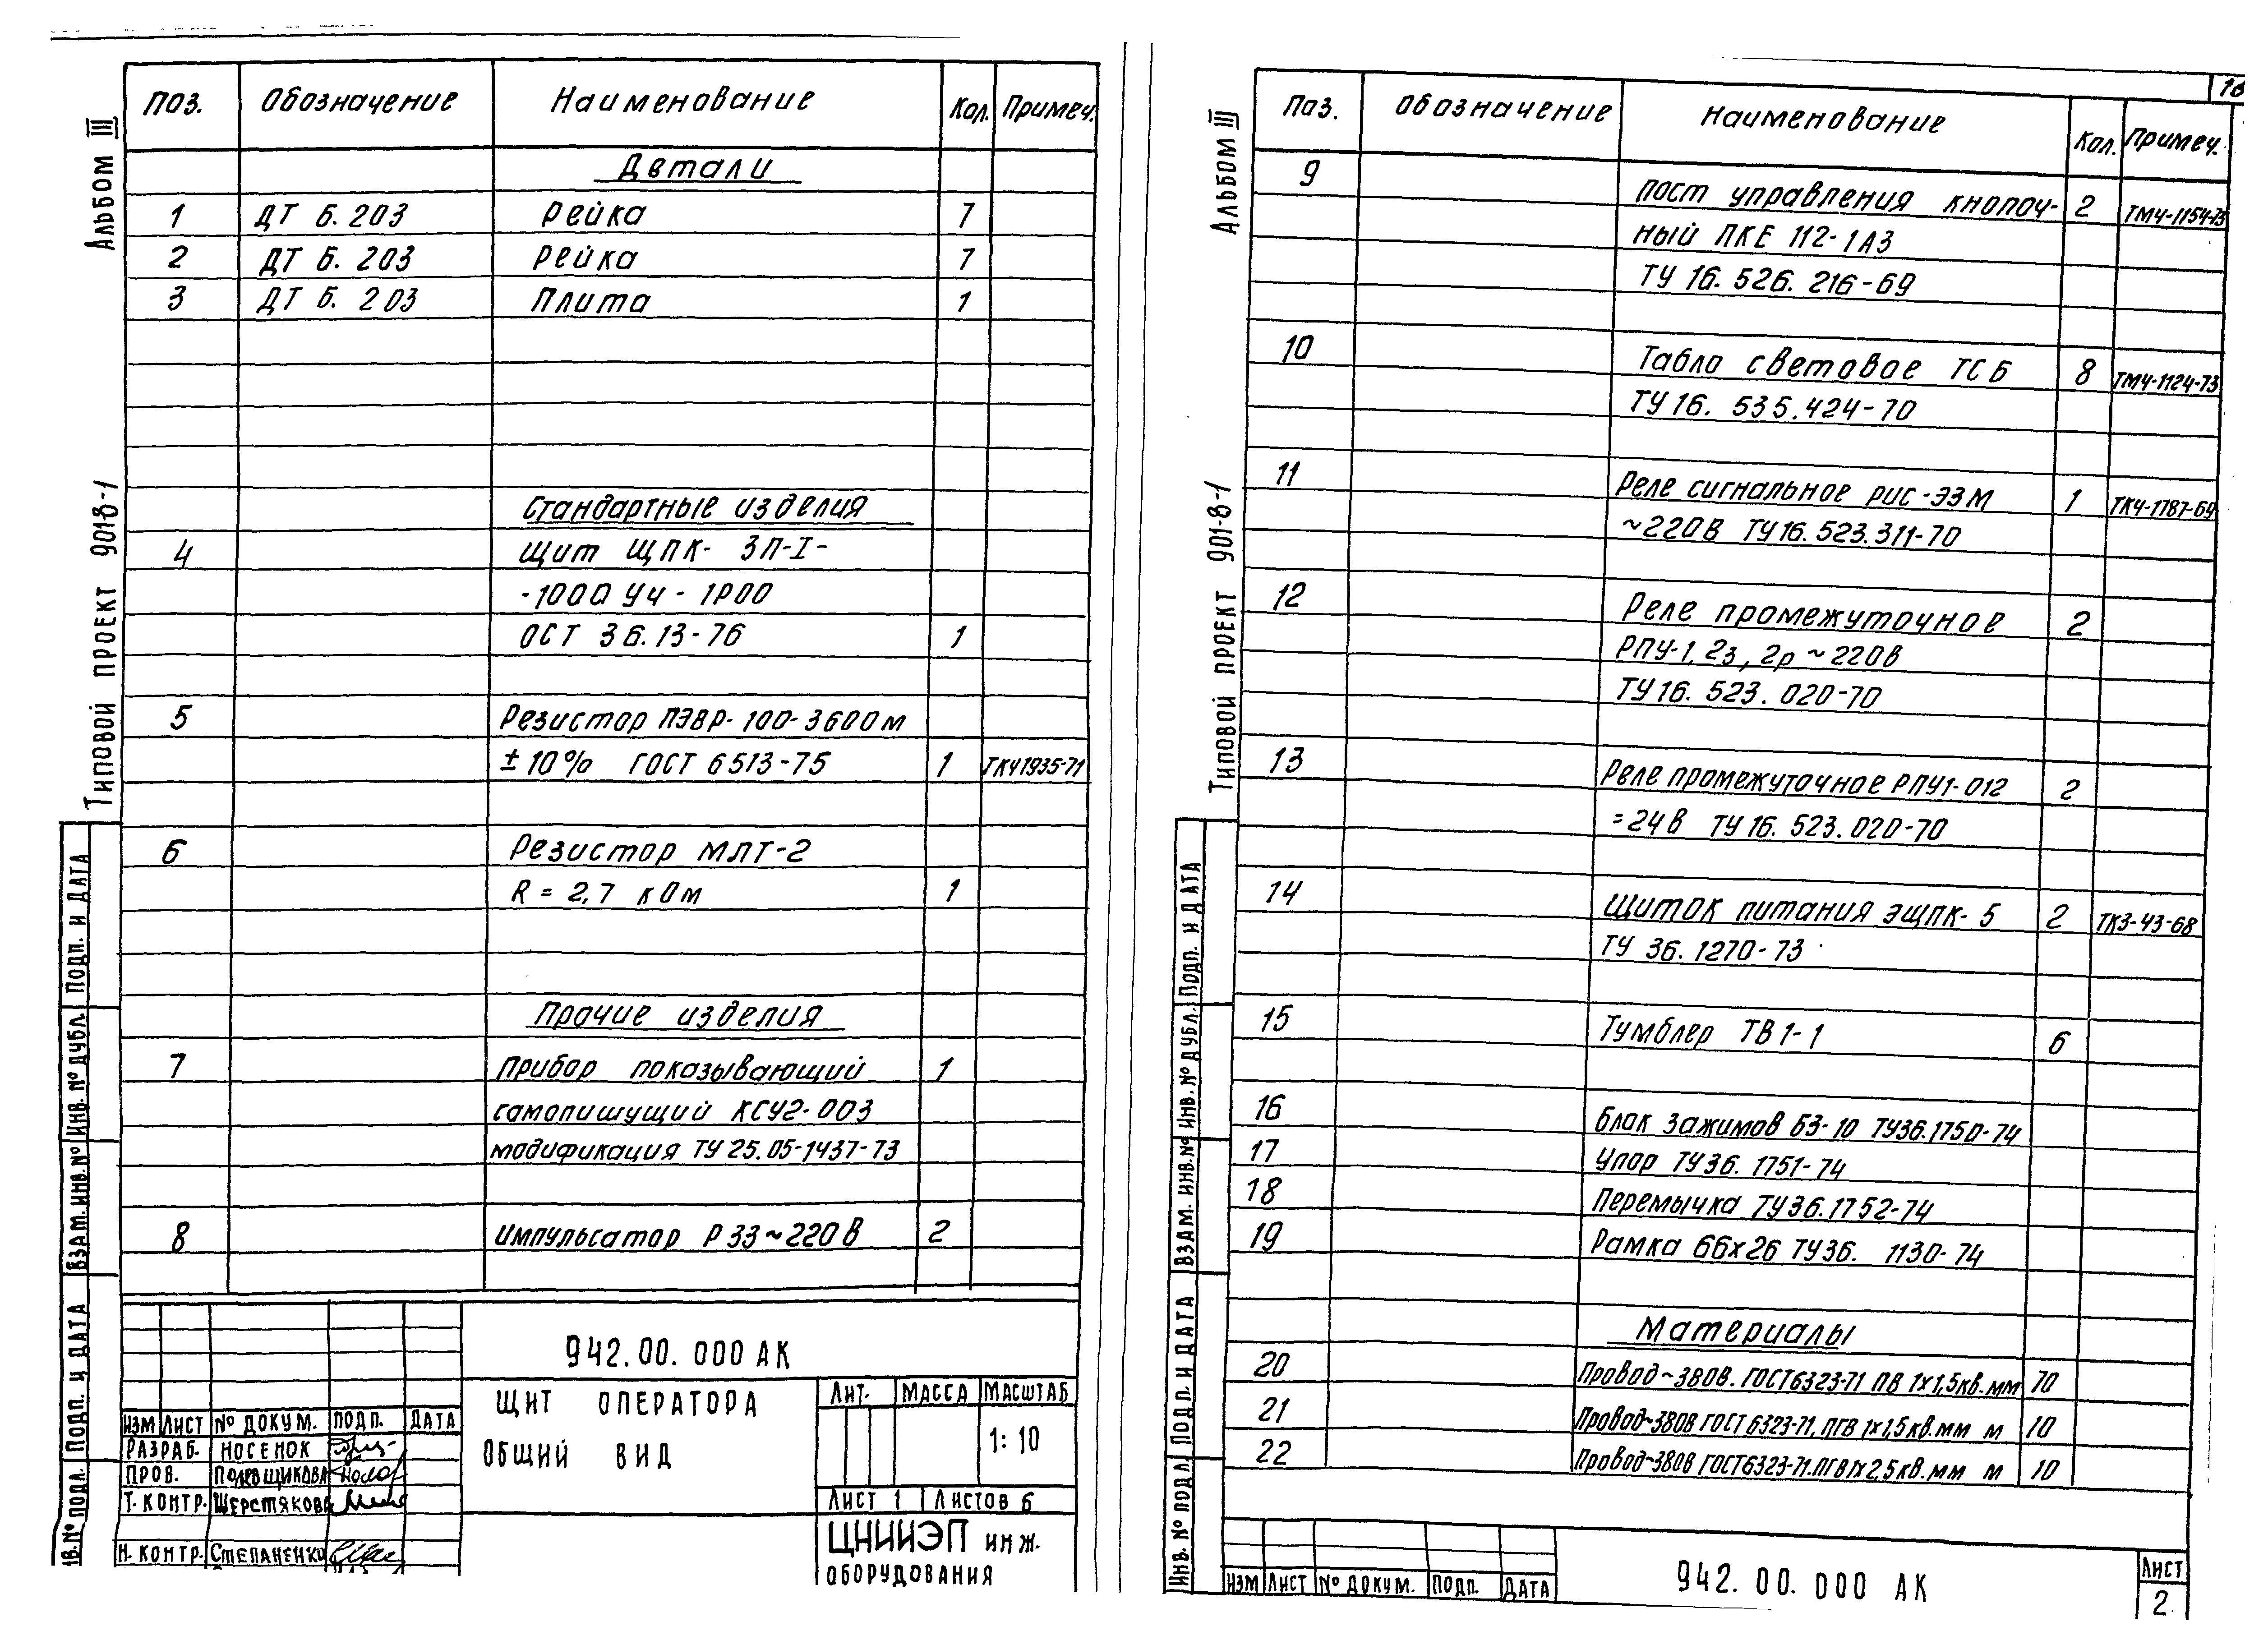 Альбом III
Типовой проект 901-8-1
Поз. Обозначение Наименование Кол. Примеч.
Детали
1 ДТ Б. 203 Рейка 7
2 ДТ Б. 203 Рейка 7
3 ДТ Б. 203 Плита 1
Стандартные изделия
4 Щит ЩПК- ЗП-I-
-1000 УЧ - IP00
ОСТ 36.13-76 1
5 Резистор ПЭВР-100-360Ом
±10% ГОСТ 6513-75 1 ТК41935-71
6 Резистор МЛТ-2
R = 2,7 кОм 1
Прочие изделия
7 Прибор показывающий 1
самопишущий КСУ2-003
модификация ТУ 25.05-1437-73
8 Импульсатор Р33 ~220В 2
942.00.000 АК
Щит оператора
Общий вид
Лит. Масса Масштаб
1:10
Лист 1 Листов 6
ЦНИИЭП инж.
оборудования
Изм Лист № докум. Подп. Дата
Разраб. Носенок
Пров. Полевщикова
Т. контр. Шерстякова
Н. контр. Степаненко
Подп. и дата
Инв. № дубл.
Взам. инв. №
Подп. и дата
Инв. № подл.
Альбом III
Типовой проект 901-8-1
Поз. Обозначение Наименование Кол. Примеч.
9 Пост управления кнопоч- 2 ТМ4-1154-73
ный ПКЕ 112-1А3
ТУ 16.526.216-69
10 Табло световое ТСБ 8 ТМ4-1124-73
ТУ 16.535.424-70
11 Реле сигнальное РИС-Э3М 1 ТК4-1787-69
~220В ТУ16.523.311-70
12 Реле промежуточное 2
РПУ-1, 2з, 2р ~220В
ТУ 16.523.020-70
13 Реле промежуточное РПУ1-012 2
=24В ТУ 16.523.020-70
14 Щиток питания ЭЩПК-5 2 ТК3-43-68
ТУ 36.1270-73
15 Тумблер ТВ1-1 6
16 Блок зажимов БЗ-10 ТУ36.1750-74
17 Упор ТУ36.1751-74
18 Перемычка ТУ36.1752-74
19 Рамка 66х26 ТУ36. 1130-74
Материалы
20 Провод ~380В. ГОСТ6323-71 ПВ 1х1,5кв.мм 70
21 Провод ~380В ГОСТ 6323-71, ПГВ 1х1,5кв.мм м 10
22 Провод ~380В ГОСТ6323-71. ПГВ 1х2,5кв.мм м 10
Подп. и дата
Инв. № дубл.
Взам. инв. №
Подп. и дата
Инв. № подл.
Изм Лист № докум. Подп. Дата
942.00.000 АК
Лист
2